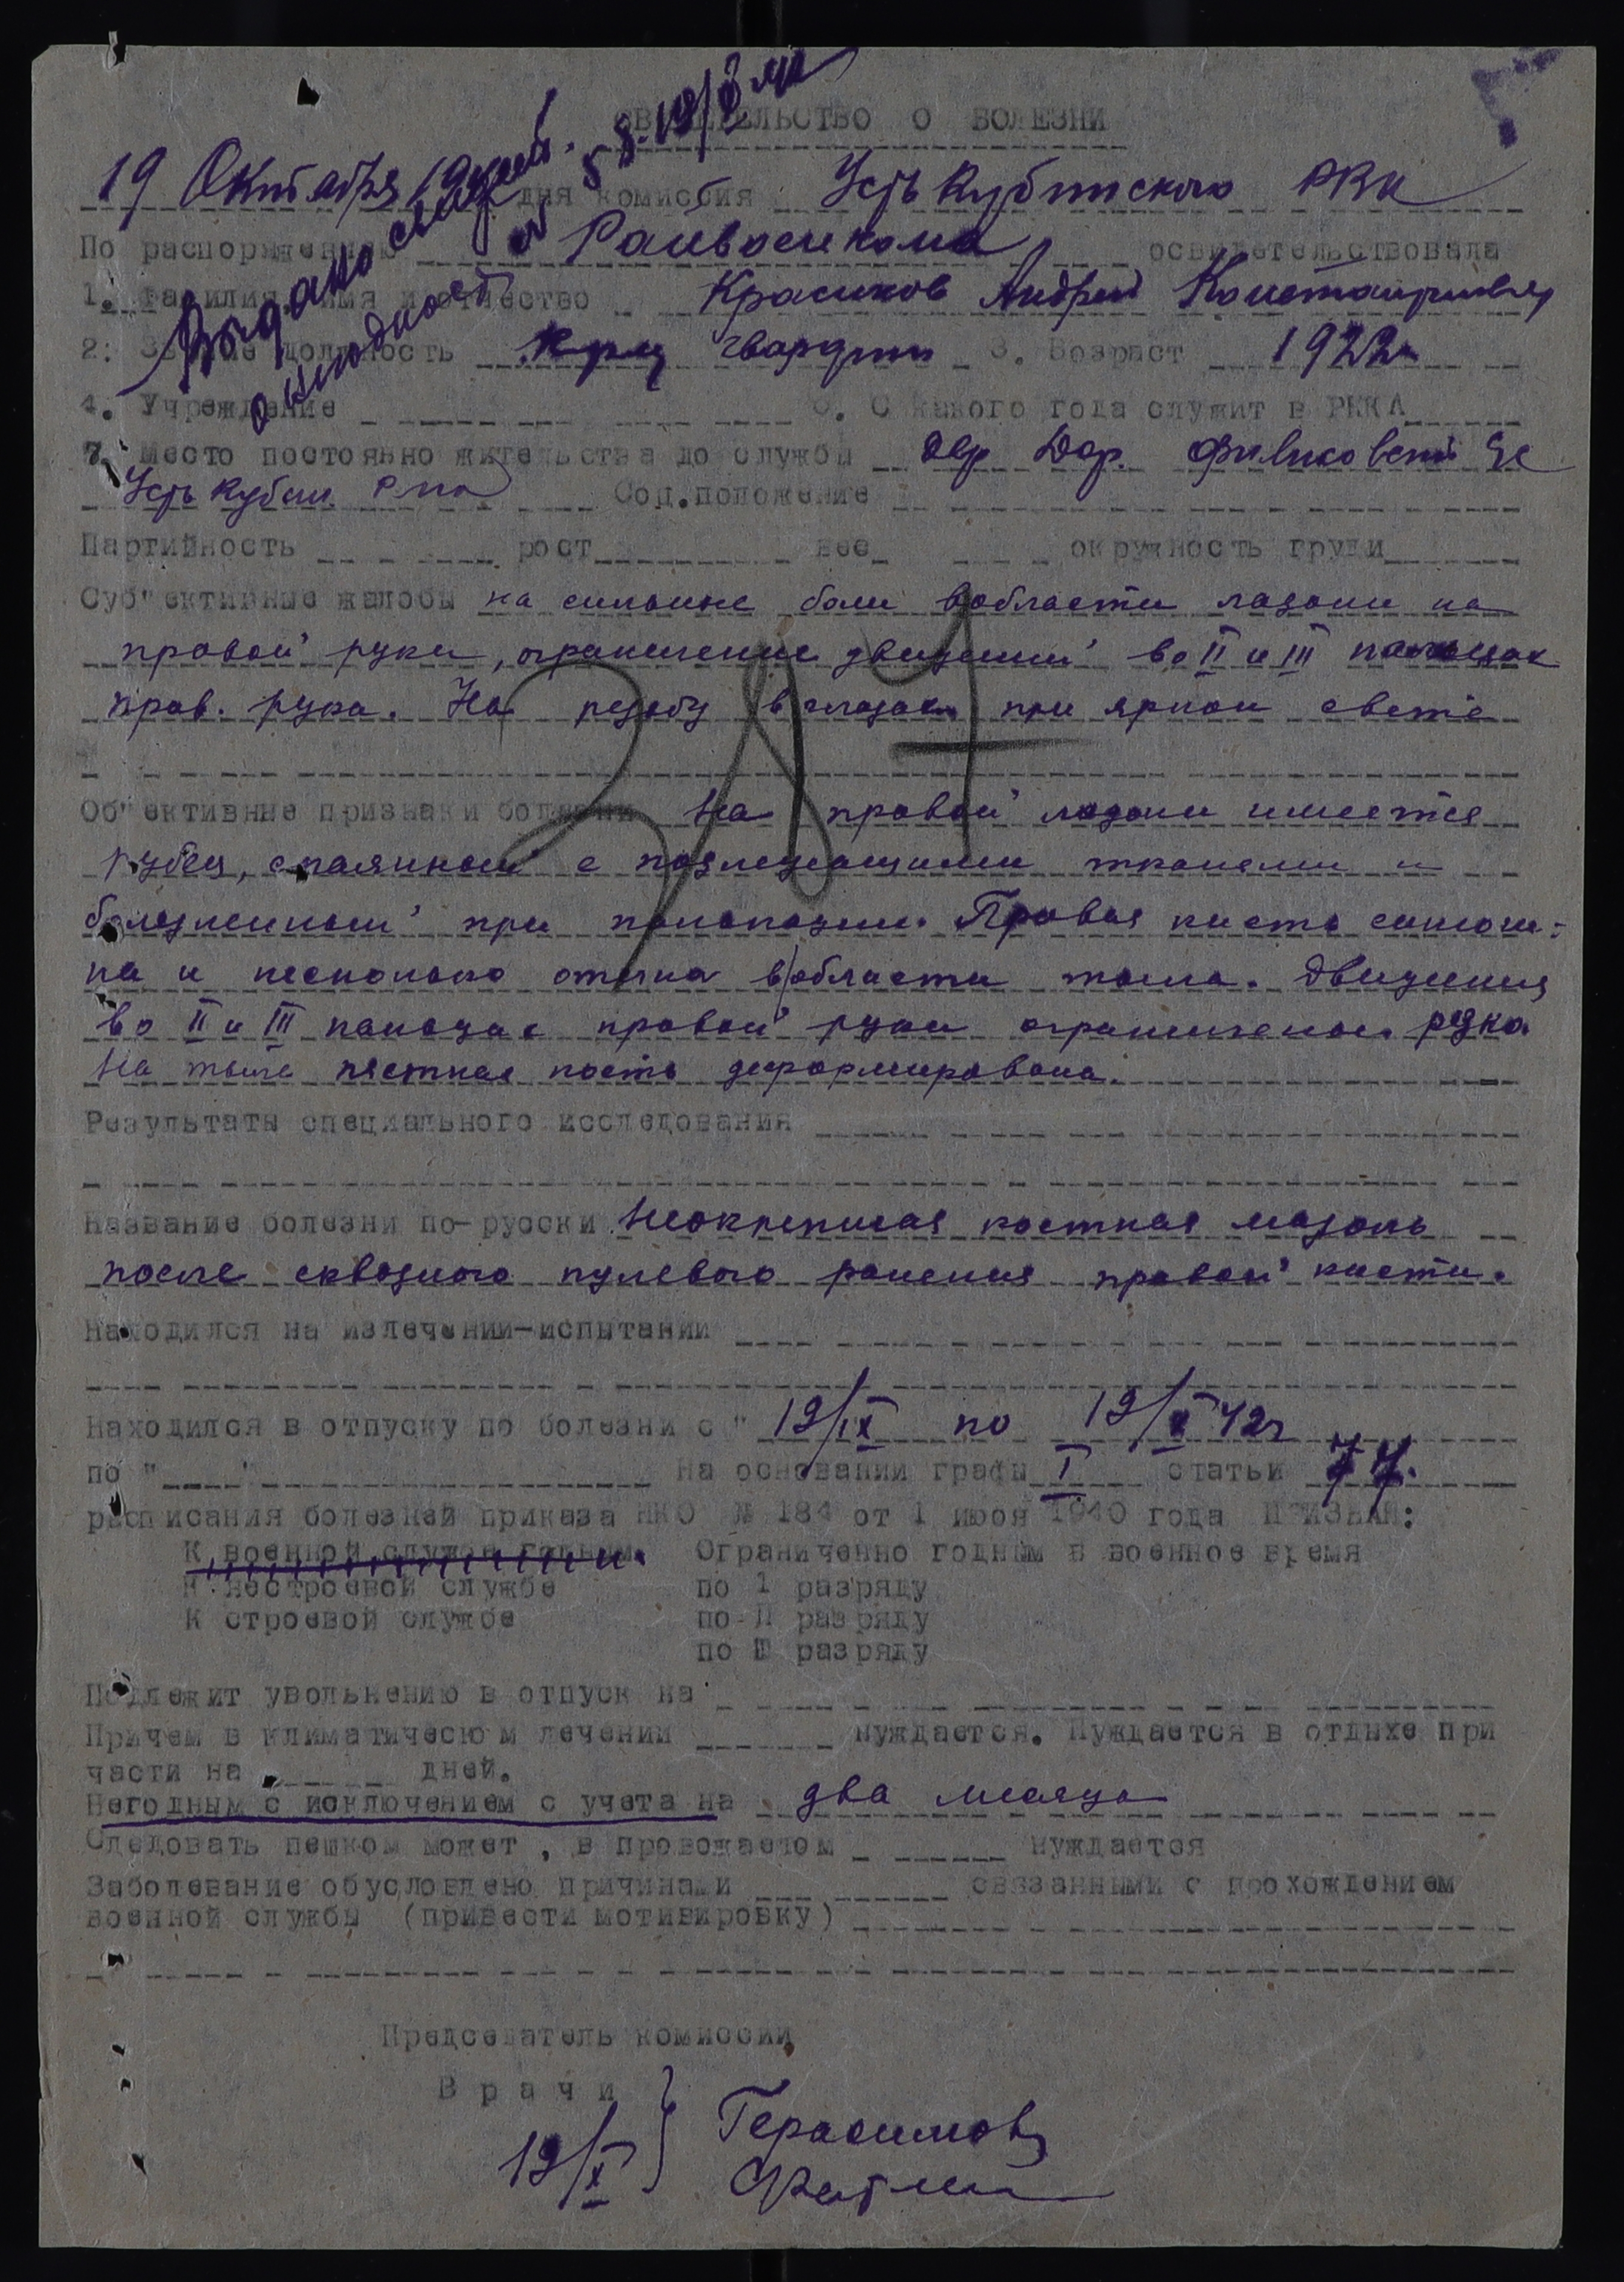 СВИДЕТЕЛЬСТВО О БОЛЕЗНИ
19 Октября дня комиссия Усть Кубинского РВК
По распоряжению Райвоенкома освидетельствовала
1. Фамилия имя и отчество Красиков Андрей Константинович
2. Звание должность гвардии 3. Возраст 1922г
4. Учреждение 6. С какого года служит в РККА
7. Место постоянно жительства до службы дер
Усть Кубин. Соц.положение
Партийность рост вес окружность груди
Суб"ективные жалобы на сильные боли в области ладони на
правой руки, ограничение движений во II и III пальцах
прав. рука. На резьбу в глазах при ярком свете
317
Об"ективные признаки болезни На правой ладони имеется
рубец, спаянный с подлежащими тканями и
болезненный при пальпации. Правая кисть синюш-
на и несколько отечна в области тыла. Движения
во II и III пальцах правой руки ограничены резко.
На тыле пястная кость деформирована.
Результаты специального исследования
Название болезни по-русски Неокрепшая костная мозоль
после сквозного пулевого ранения правой кисти.
Находился на излечении-испытании
Находился в отпуску по болезни с " 19/IX по 19/X 42г
по " " На основании графы I статьи 77.
расписания болезней приказа НКО № 184 от 1 июня 1940 года ПРИЗНАН:
К военной службе годным. Ограниченно годным в военное время
К нестроевой службе по 1 разряду
К строевой службе по II разряду
по III разряду
Подлежит увольнению в отпуск на
Причем в климатическом лечении нуждается. Нуждается в отдыхе при
части на дней.
Негодным с исключением с учета на два месяца
Следовать пешком может , в провожаетом нуждается
Заболевание обусловлено причинами связанными с прохождением
военной службы (привести мотивировку)
Председатель комиссии
Врачи
19/X Герасимов
Выдано
о негодности